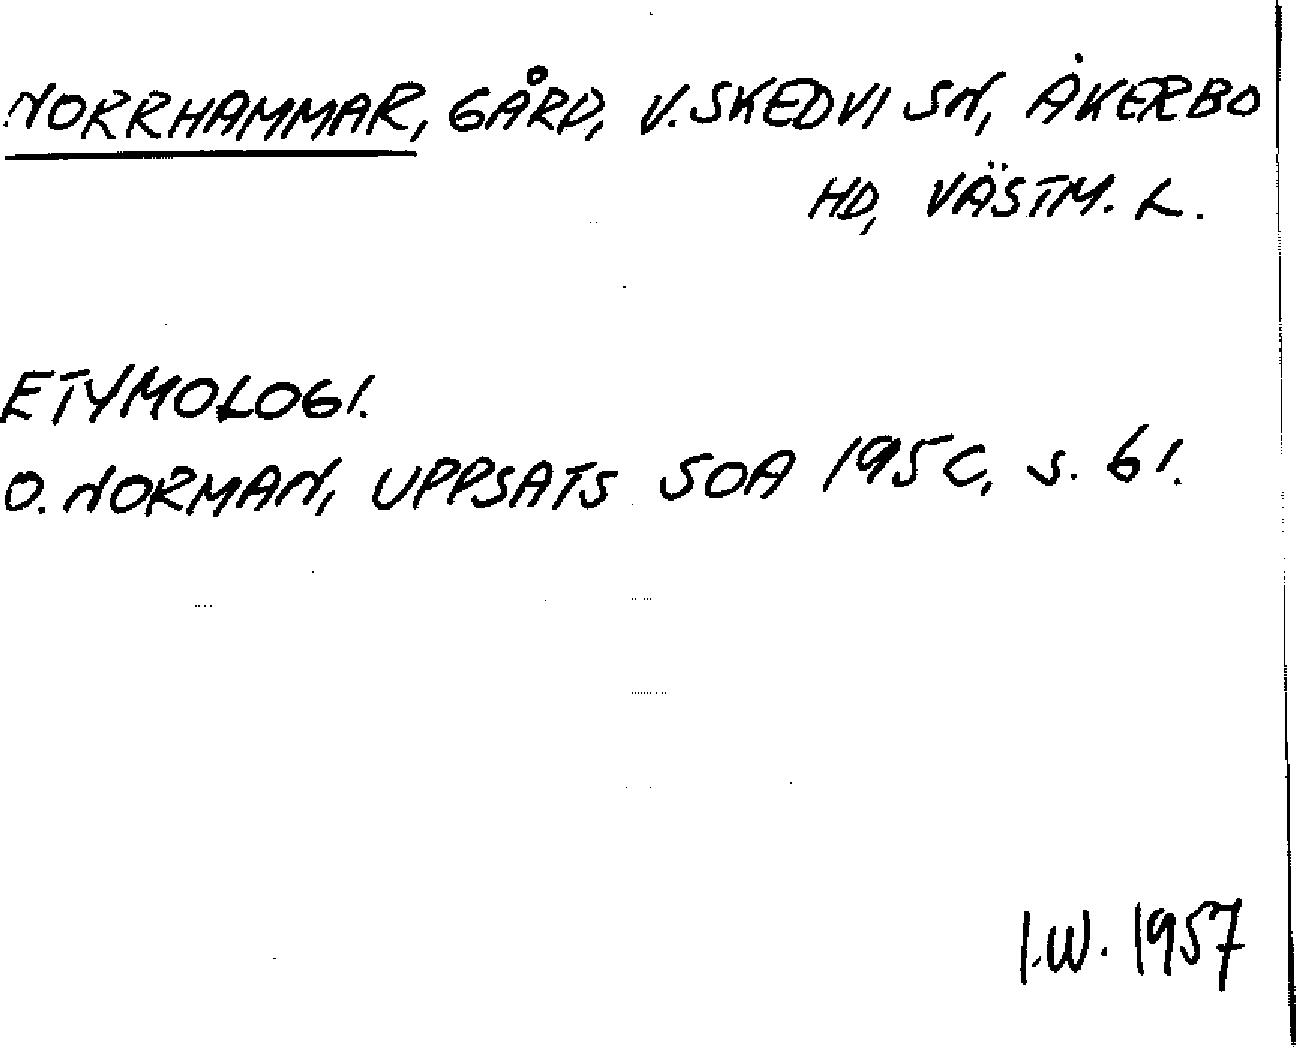 NORRHAMMAR, GÅRD, V. SKEDVI SN, ÅKERBO
HD, VÄSTM. L.
ETYMOLOGI.
O. NORMAN, UPPSATS SOA 195C, s. 61.
I.W. 1957